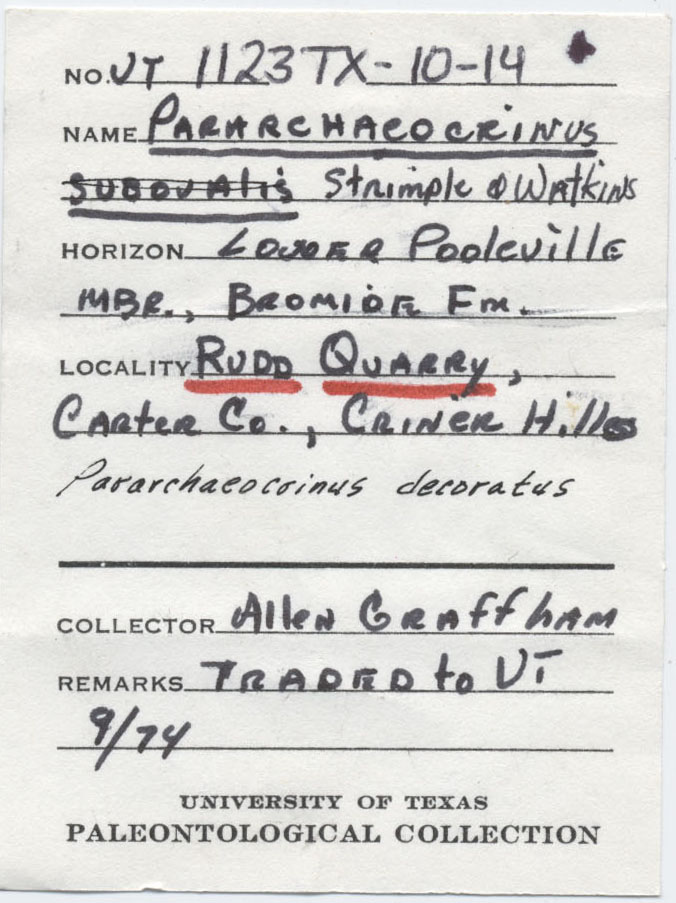 NO. UT 1123TX-10-14
NAME PARARCHAEOCRINUS
SUBOVALIS Strimple & Watkins
HORIZON LOWER POOLEVILLE
MBR., BROMIDE Fm.
LOCALITY RUDD QUARRY,
CARTER CO., CRINER Hills
Pararchaeocrinus decoratus
COLLECTOR Allen Graffham
REMARKS TRADED to UT
9/74
UNIVERSITY OF TEXAS
PALEONTOLOGICAL COLLECTION